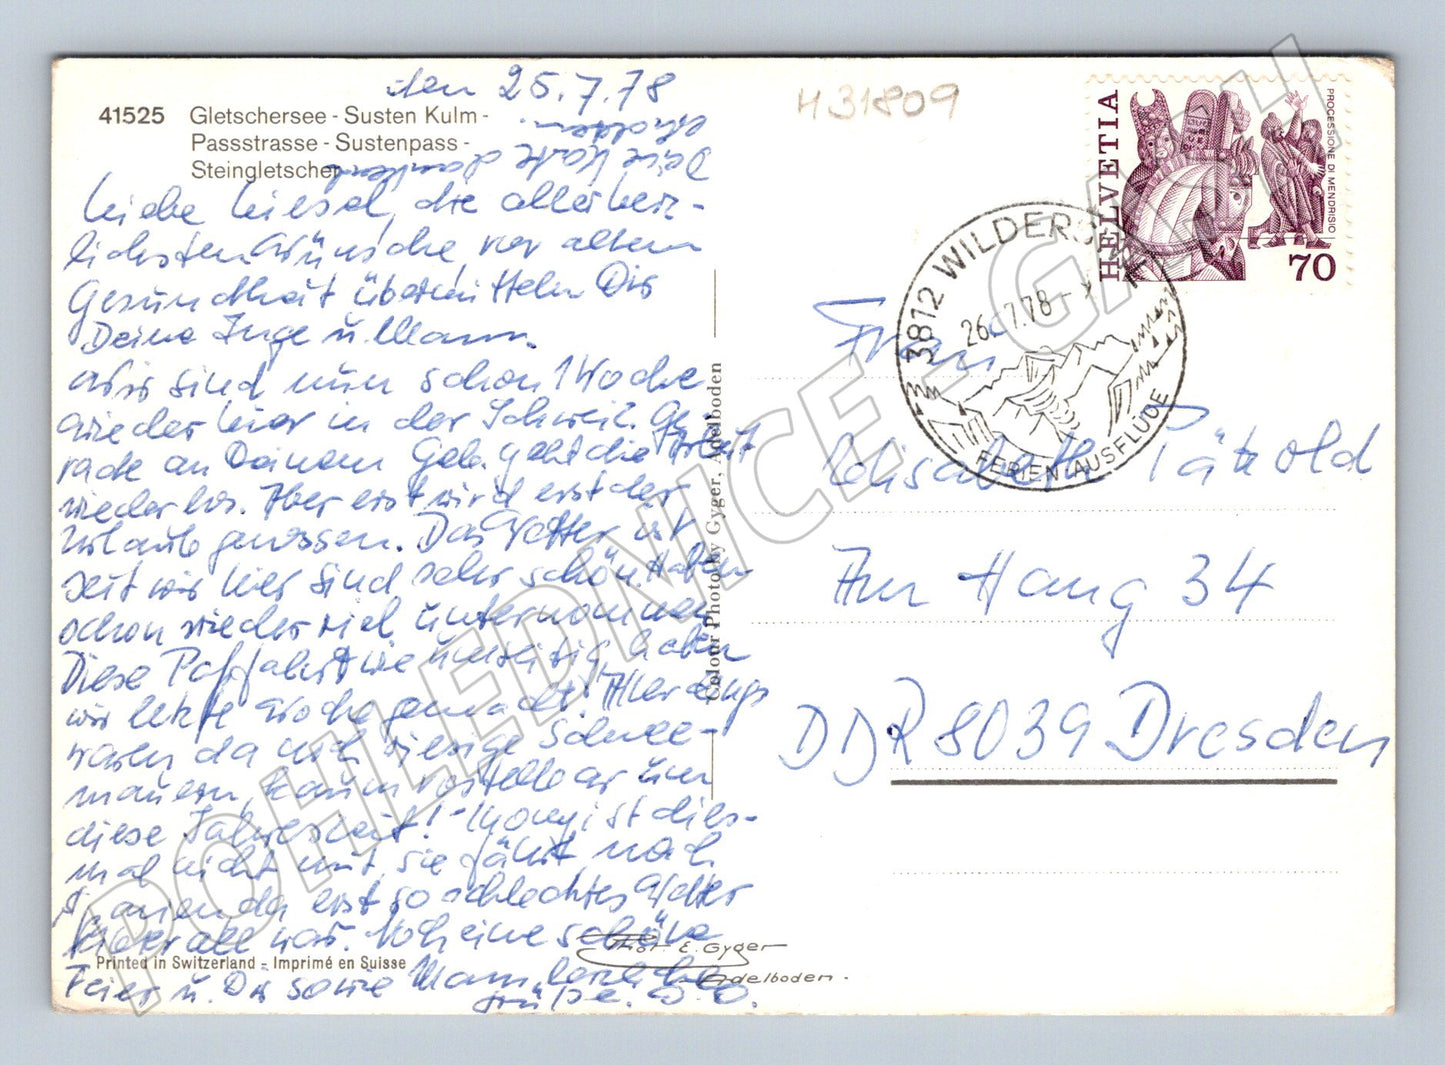 den 25.7.78
H31809
41525 Gletschersee - Susten Kulm -
Passstrasse - Sustenpass -
Steingletscher
Deine Karte dankend
erhalten.
Liebe Liesel, die allerherz-
lichsten Wünsche vor allem
Gesundheit übermitteln Dir
Deine Inge u. Mann.
Wir sind nun schon 1 Woche
wieder hier in der Schweiz. Ge-
rade an Deinem Geb. geht die Arbeit
wieder los. Aber erst wird erst der
Urlaub genossen. Das Wetter ist
seit wir hier sind sehr schön. Haben
schon wieder viel unternommen
Diese Paßfahrt wie umseitig, haben
wir letzte Woche gemacht! Allerdings
waren da noch riesige Schnee-
mauern, kaum vorstellbar um
diese Jahreszeit! - ist dies-
mal nicht mit, sie fährt nach
Spanien da erst so schlechtes Wetter
überall war. Noch eine schöne
Feier u. Dir sowie Mam herzliche
Grüße. D. O.
Printed in Switzerland - Imprimé en Suisse
Phot. E. Gyger
Adelboden.
Colour Photo by Gyger, Adelboden
HELVETIA
PROCESSIONE DI MENDRISIO
70
3812 WILDERSWIL
26.7.78
FERIEN AUSFLÜGE
Frau
Elisabeth Pätzold
Am Hang 34
DDR 8039 Dresden
POHLEDNICE GARU